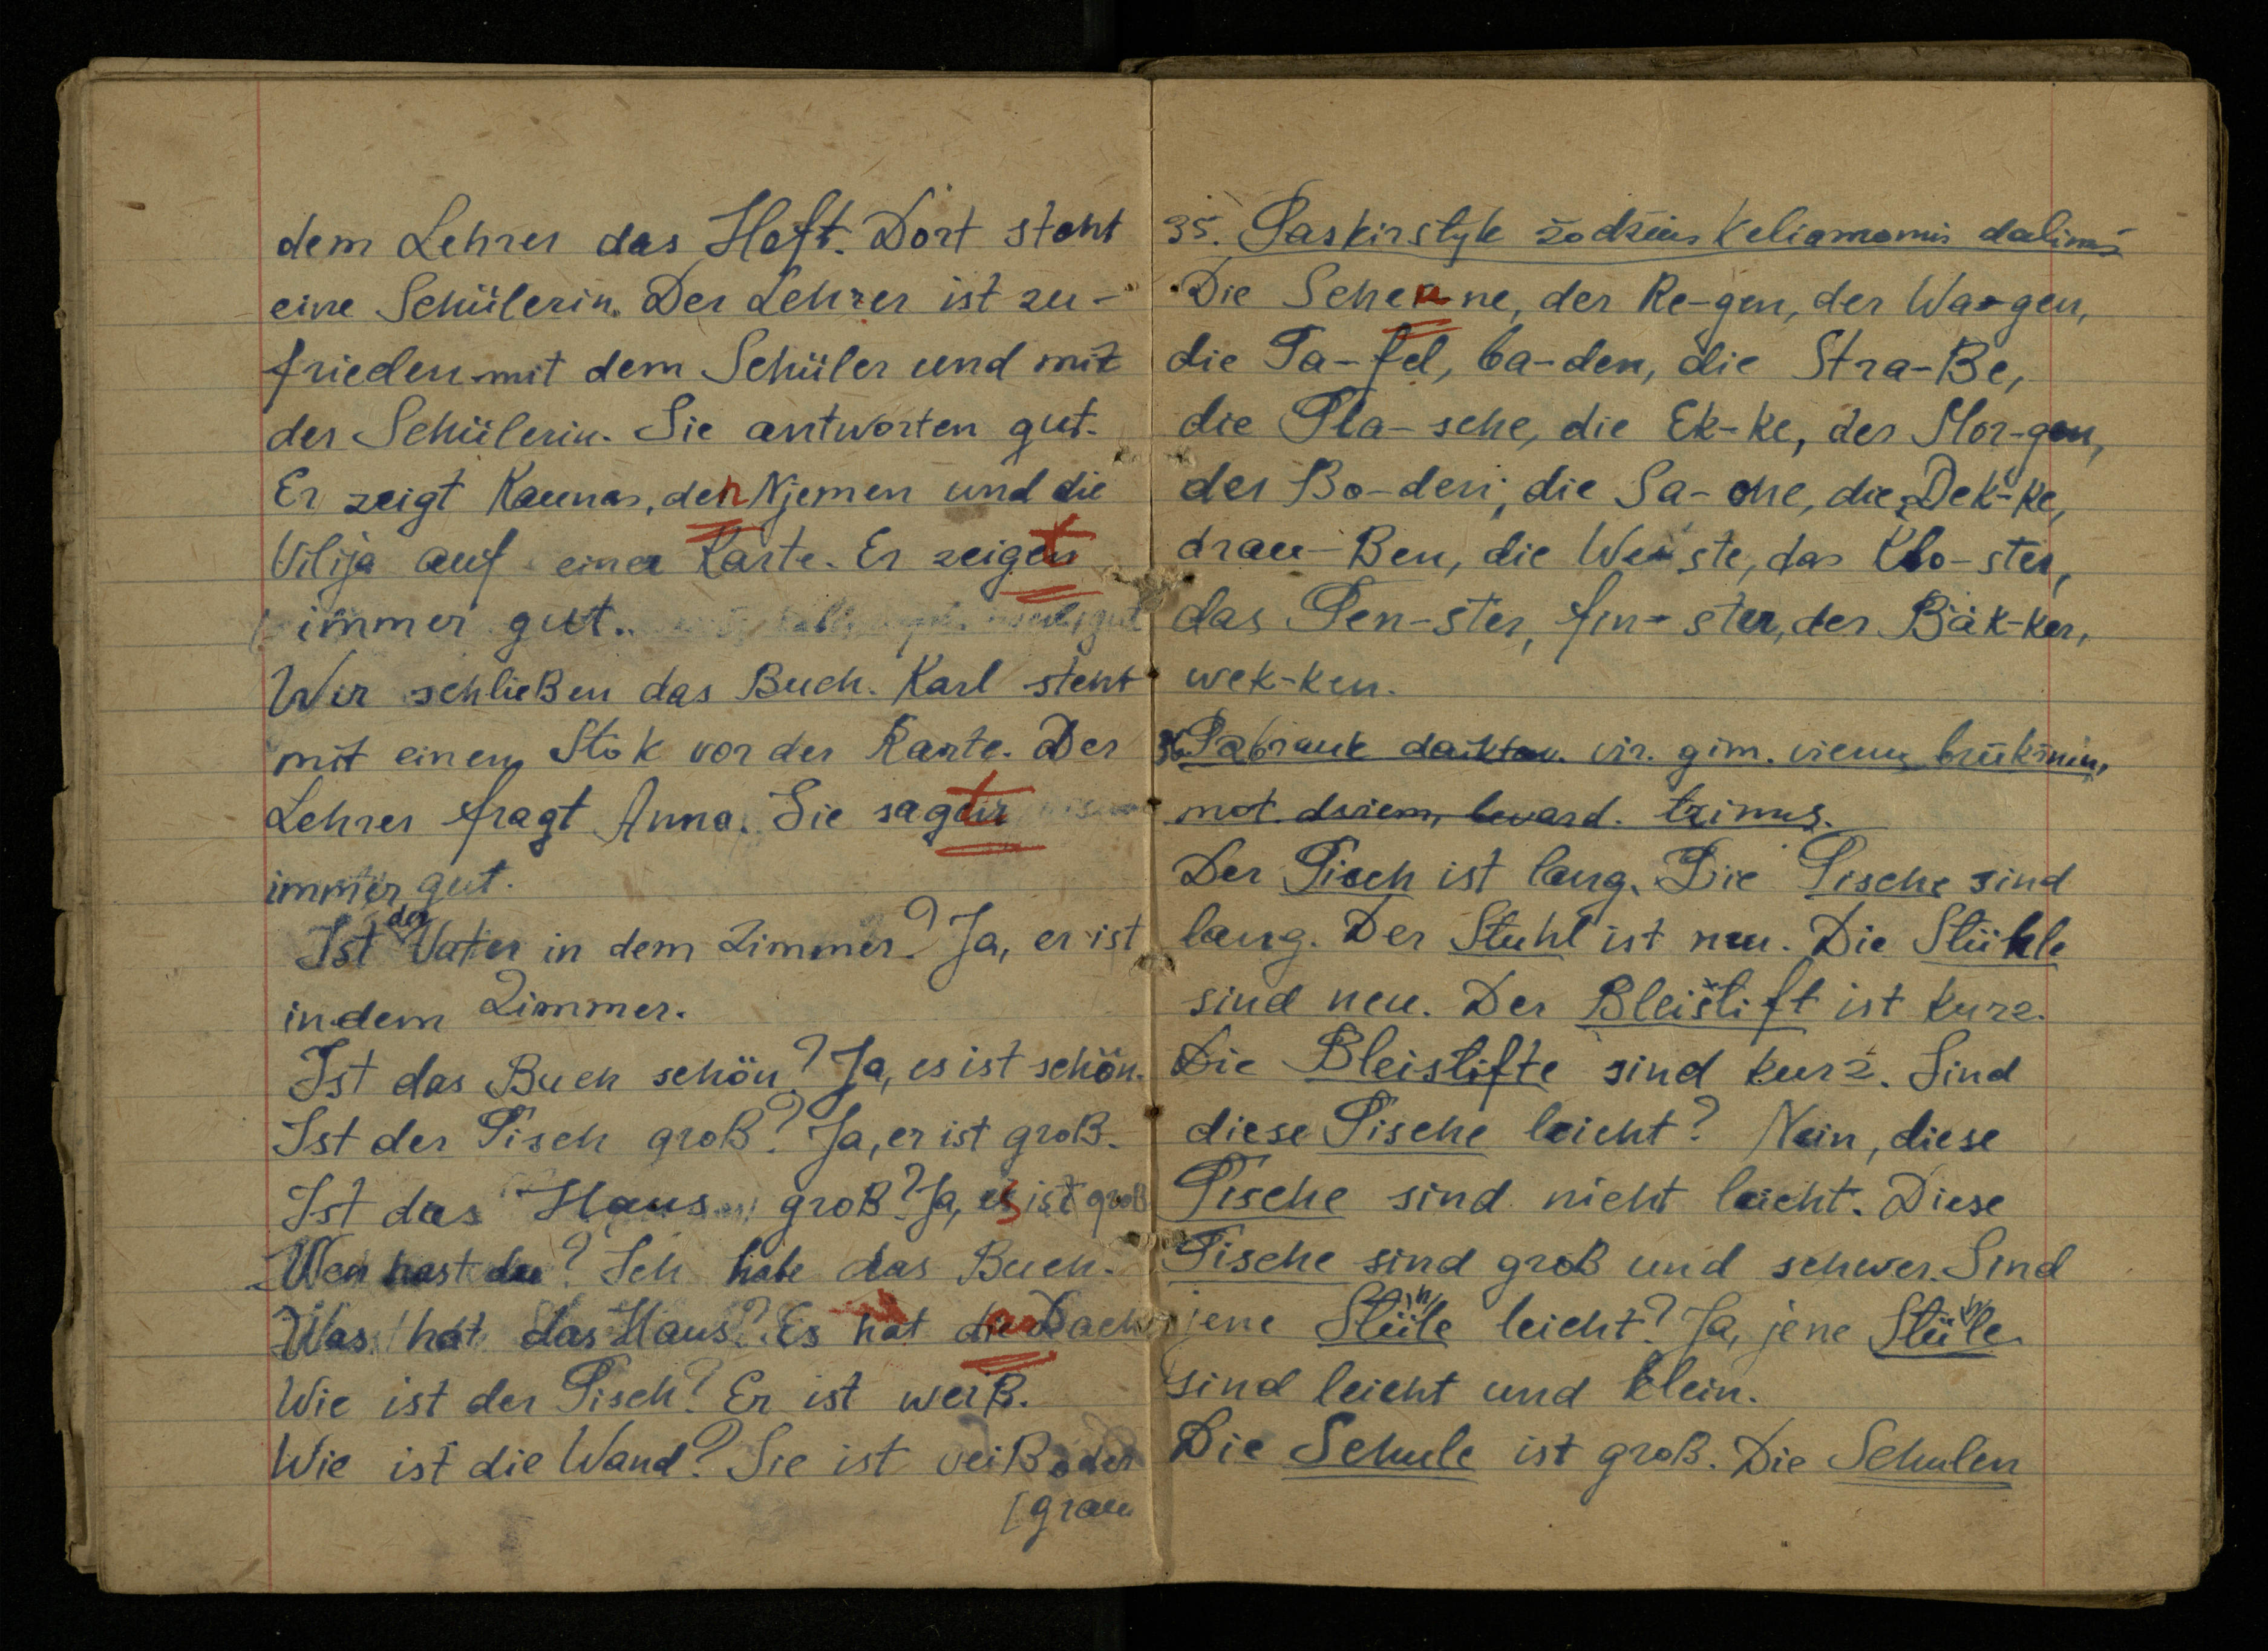 dem Lehrer das Heft. Dort steht
eine Schülerin. Der Lehrer ist zu-
frieden mit dem Schüler und mit
der Schülerin. Sie antworten gut.
Er zeigt Kaunas, den Njemen und die
Vilija auf einer Karte. Er zeigt
immer gut.
Wir schließen das Buch. Karl steht
mit einen Stok vor der Karte. Der
Lehrer fragt Anna. Sie sagt
immer gut.
Ist der Vater in dem Zimmer? Ja, er ist
in dem Zimmer.
Ist das Buch schön? Ja, es ist schön.
Ist der Tisch groß? Ja, er ist groß.
Ist das Haus groß? Ja, es ist groß
Wen hast du? Ich habe das Buch.
Was hat das Haus? Es hat Dach
Wie ist der Tisch? Er ist weiß.
Wie ist die Wand? Sie ist veiß oder
[grau
35. Paskirstyk žodžius keliamomis dalimis
Die Scheu-ne, der Re-gen, der Wa-gen,
die Ta-fel, ba-den, die Stra-ße,
die Fla-sche, die Ek-ke, der Mor-gen,
der Bo-den, die Sa-che, die Dek-ke,
drau-ßen, die ste, das Klo-ster,
das Fen-ster, fin-ster, der Bäk-ker,
wek-ken.
36. Pabrauk daiktav. vir. gim. vienu brūkšniu,
mot. dviem, bevard. trimis.
Der Tisch ist lang. Die Tische sind
lang. Der Stuhl ist neu. Die Stühle
sind neu. Der Bleistift ist kurz.
Die Bleistifte sind kurz. Sind
diese Tische leicht? Nein, diese
Tische sind nicht leicht. Diese
Tische sind groß und schwer. Sind
jene Stühle leicht? Ja, jene Stühle
sind leicht und klein.
Die Schule ist groß. Die Schulen